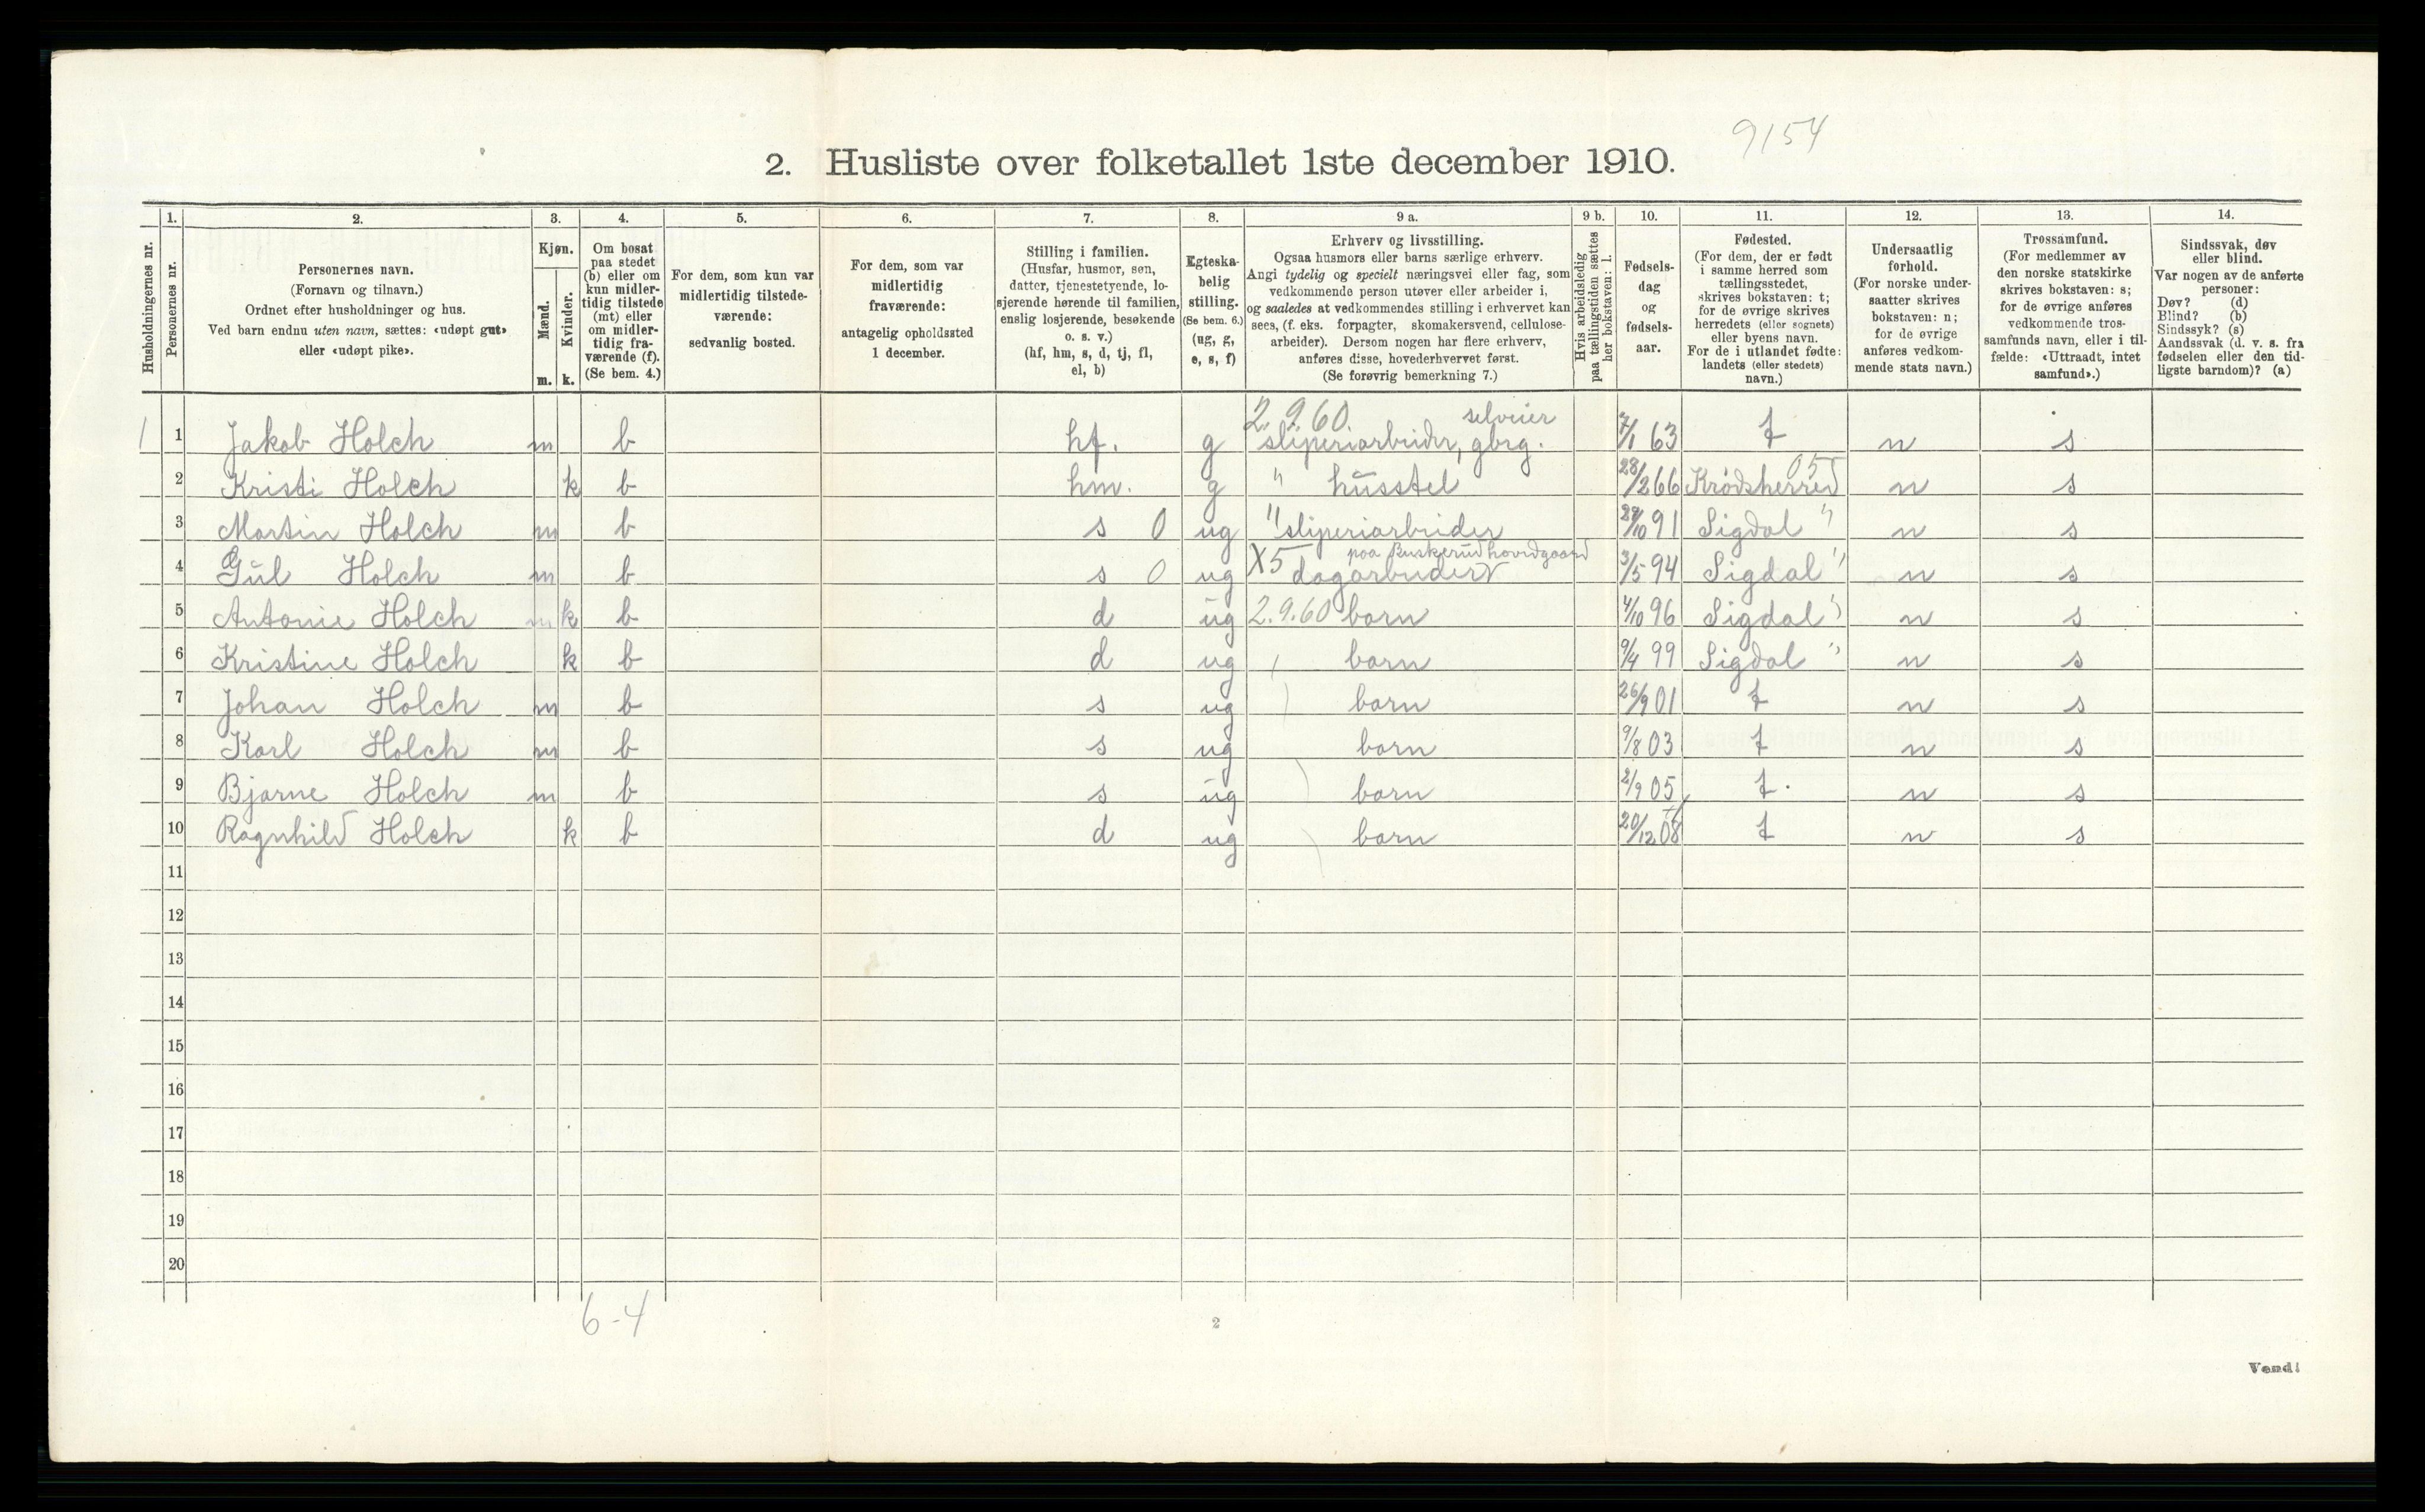 9154
2. Husliste over folketallet 1ste december 1910.
Husholdningernes nr.
1. Personernes nr.
2. Personernes navn.
(Fornavn og tilnavn.)
Ordnet efter husholdninger og hus.
Ved barn endnu uten navn, sættes: «udøpt gut»
eller «udøpt pike».
3. Kjøn.
Mænd. m.
Kvinder. k.
4. Om bosat
paa stedet
(b) eller om
kun midler-
tidig tilstede
(mt) eller
om midler-
tidig fra-
værende (f).
(Se bem. 4.)
5. For dem, som kun var
midlertidig tilstede-
værende:
sedvanlig bosted.
6. For dem, som var
midlertidig
fraværende:
antagelig opholdssted
1 december.
7. Stilling i familien.
(Husfar, husmor, søn,
datter, tjenestetyende, lo-
sjerende hørende til familien,
enslig losjerende, besøkende
o. s. v.)
(hf, hm, s, d, tj, fl,
el, b)
8. Egteska-
belig
stilling.
(Se bem. 6.)
(ug, g,
e, s, f)
9 a. Erhverv og livsstilling.
Ogsaa husmors eller barns særlige erhverv.
Angi tydelig og specielt næringsvei eller fag, som
vedkommende person utøver eller arbeider i,
og saaledes at vedkommendes stilling i erhvervet kan
sees, (f. eks. forpagter, skomakersvend, cellulose-
arbeider). Dersom nogen har flere erhverv,
anføres disse, hovederhvervet først.
(Se forøvrig bemerkning 7.)
9 b. Hvis arbeidsledig
paa tællingstiden sættes
her bokstaven: l.
10. Fødsels-
dag
og
fødsels-
aar.
11. Fødested.
(For dem, der er født
i samme herred som
tællingsstedet,
skrives bokstaven: t;
for de øvrige skrives
herredets (eller sognets)
eller byens navn.
For de i utlandet fødte:
landets (eller stedets)
navn.)
12. Undersaatlig
forhold.
(For norske under-
saatter skrives
bokstaven: n;
for de øvrige
anføres vedkom-
mende stats navn.)
13. Trossamfund.
(For medlemmer av
den norske statskirke
skrives bokstaven: s;
for de øvrige anføres
vedkommende tros-
samfunds navn, eller i til-
fælde: «Uttraadt, intet
samfund».)
14. Sindssvak, døv
eller blind.
Var nogen av de anførte
personer:
Døv? (d)
Blind? (b)
Sindssyk? (s)
Aandssvak (d. v. s. fra
fødselen eller den tid-
ligste barndom)? (a)
2.9.60 selveier
1 1 Jakob Holch m b hf. g sliperiarbeider, gbrg. 7/1 63 t n s
2 Kristi Holch k b hm. g " husstel 28/2 66 Krødsherred 05 n s
3 Martin Holch m b s 0 ug " sliperiarbeider 91 Sigdal " n s
paa Buskerud hovedgaard
4 Gul Holch m b s 0 ug X5 dagarbeider 3/5 94 Sigdal " n s
5 Antonie Holch k b d ug 2.9.60 barn 4/10 96 Sigdal " n s
6 Kristine Holch k b d ug barn 9/4 99 Sigdal " n s
7 Johan Holch m b s ug barn 26/9 01 t n s
8 Karl Holch m b s ug barn 9/8 03 t n s
9 Bjarne Holch m b s ug barn 2/9 05 t. n s
10 Ragnhild Holch k b d ug barn 20/12 08 t n s
11
12
13
14
15
16
17
18
19
20
6-4
2
Vend!